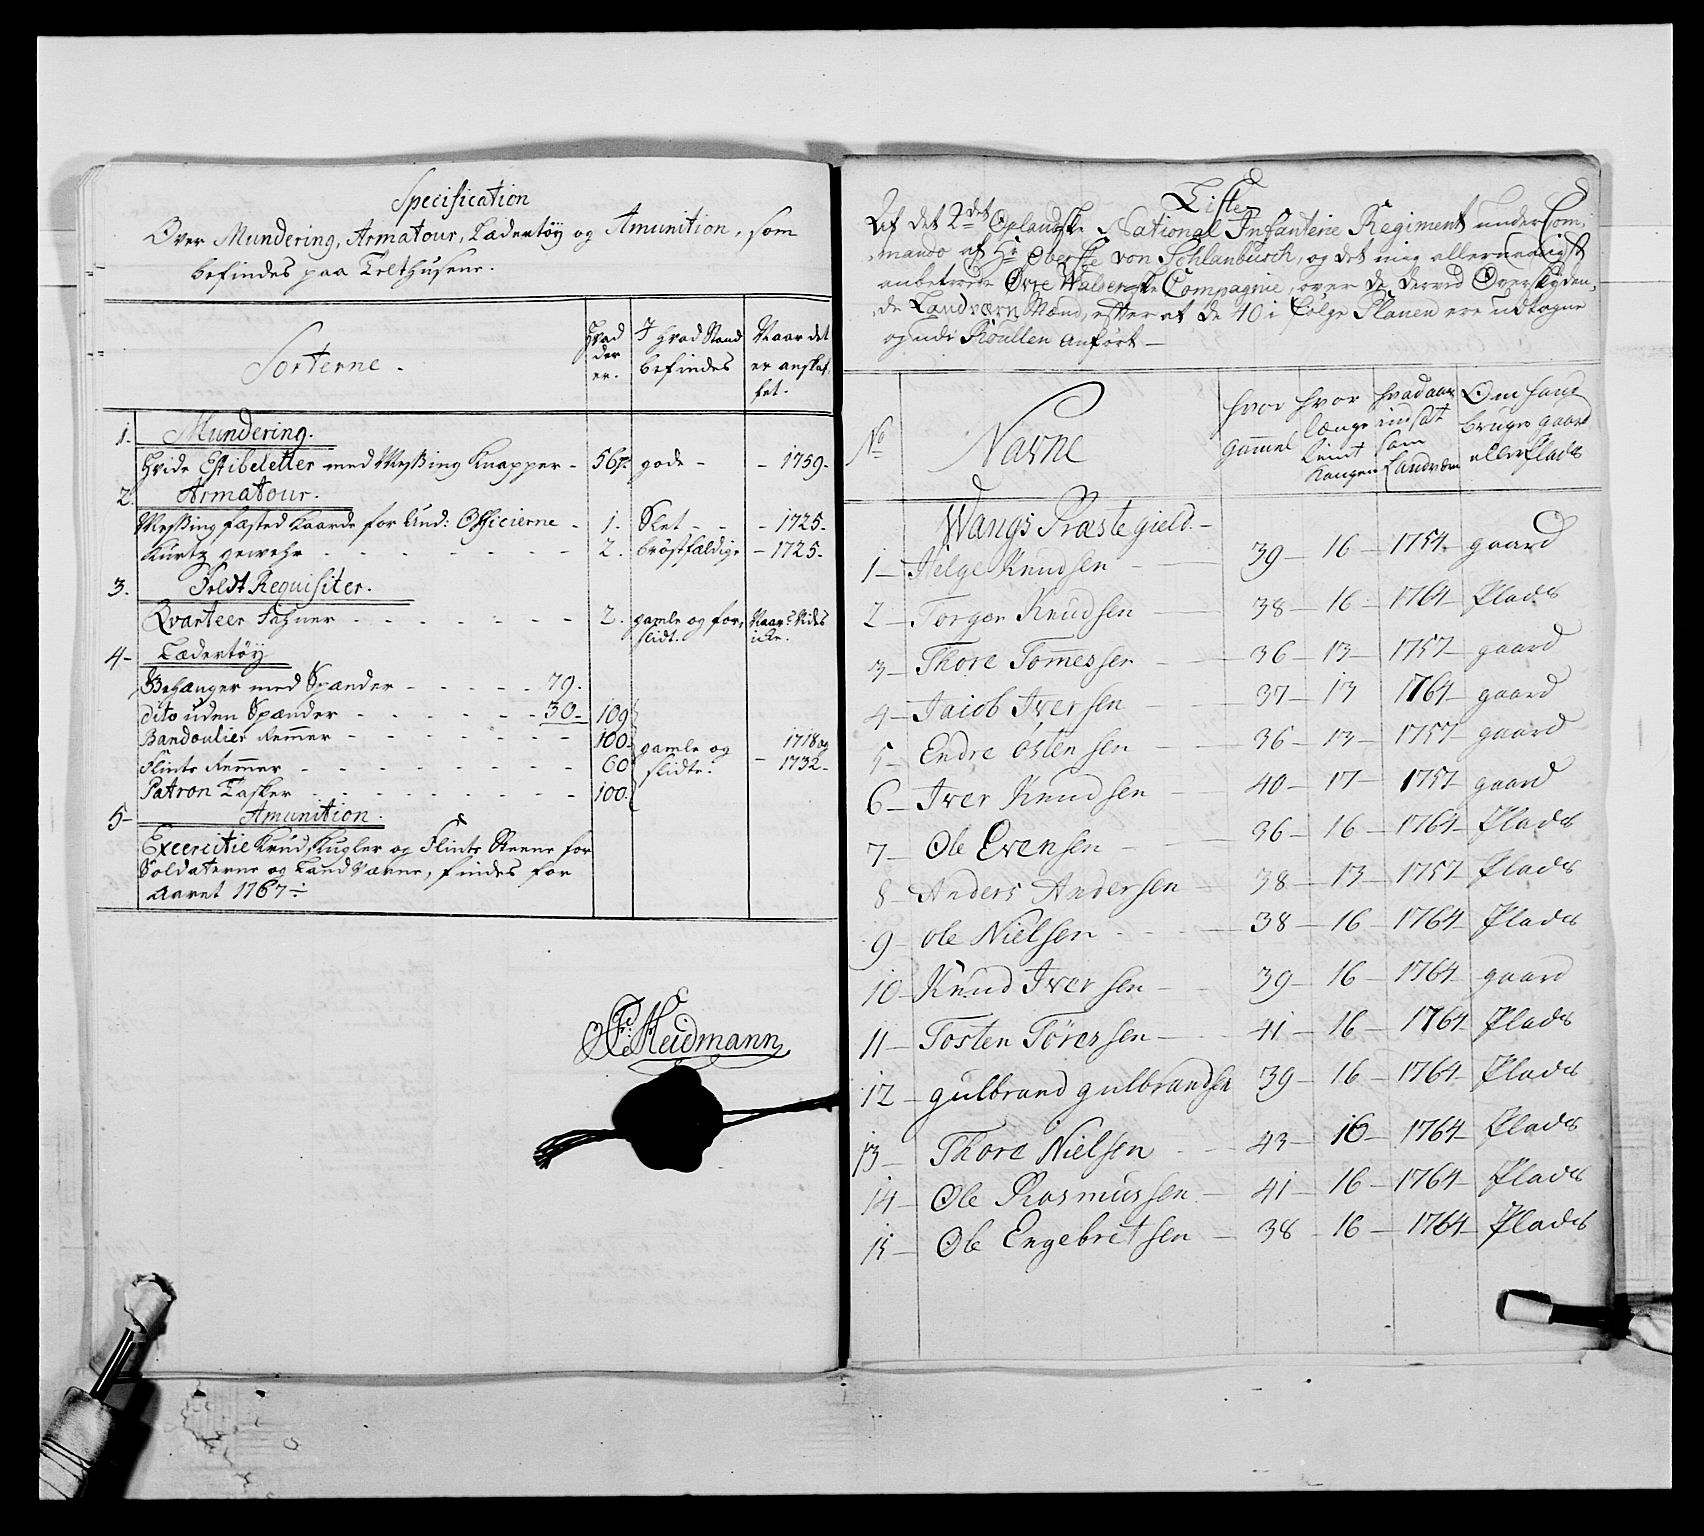 Specification
Over Mundering, Armatour, Lædertöÿ og Amunition, som
befindes paa Telthusene.
Sorterne.
Hvad
der
er.
I hvad Stand
befindes
Naar det
er anskaf,
fet.
1. Mundering.
Hvide Stibeletter med Messing Knapper - 56 p. gode - - 1759.
2. Armatour.
Messing fæsted Kaarde for Und: Officierne - 1. Slet - - - 1725.
Kurtz gewehr - - - - - - - 2. bröstfældige - 1725.
3. Feldt Requisiter.
Qvarteer Fahner - - - - - - 2. gamle og for, Naar Vides
slidt. icke.
4- Lædertöÿ
Behænger med Spænder - - - - - 79.
dito uden Spænder - - - - - 30. 109
Bandoulier Remmer - - - - - - - 100. gamle og 1718 og
Flint Remmer - - - - - - - - 60 slidte. - 1732.
Patron Tasker - - - - - - - - 100.
5- Amunition.
Excercitie Krud, Kugler og Flint Steene for
Soldaterne og Land Værne, findes for
Aaret 1767 ÷
Heidmann
Liste
Af det 2det Oplandske National Infanterie Regiment under Com,
mando af Hr Oberste von Schlanbusch, og det mig allernaadigst
anbetroede Øvre Walderske Compagnie, over de derved Overskÿden,
de Landværn Mænd, efter at de 40 i Fölge Planen ere udtagne
og udi Roullen anfört -
No
Navne
hvor
Gammel
hvor
længe
tient
Kongen
hvad aar
indsat
som
Landværn
Om hand
bruger gaard
eller Plads
Wangs Præstegield. -
1 - Helge Knudsen - 39 - 16 - 1754. gaard
2 - Torger Knudsen - 38 - 16 - 1764 - Plads
3 - Thore Tom̄essen - 36 - 13 - 1757 - gaard
4 - Jacob Iversen - 37 - 13 1764 - gaard
5 - Endre Østensen - 36 - 13 - 1757 - gaard
6 - Iver Knudsen - 40 - 17 - 1757 gaard
7 - Ole Evensen - 36 - 16 - 1764 - Plads
8 - Anders Andersen - 38 - 13 - 1757 Plads
9 - ole Nielsen - 38 - 16 - 1764 - Plads
10 - Knud Iversen - 39 - 16 - 1764 - gaard
11 - Tosten Törersen - 41 - 16 - 1764 Plads
12 - gulbrand gulbrandsen 39 - 16 - 1764 - Plads
13 - Thore Nielsen - 43 - 16 - 1764 - Plads
14 - Ole Rasmussen - 41 - 16 - 1764 - Plads
15 - Ole Engebretsen - 38 - 16 - 1764 - Plads